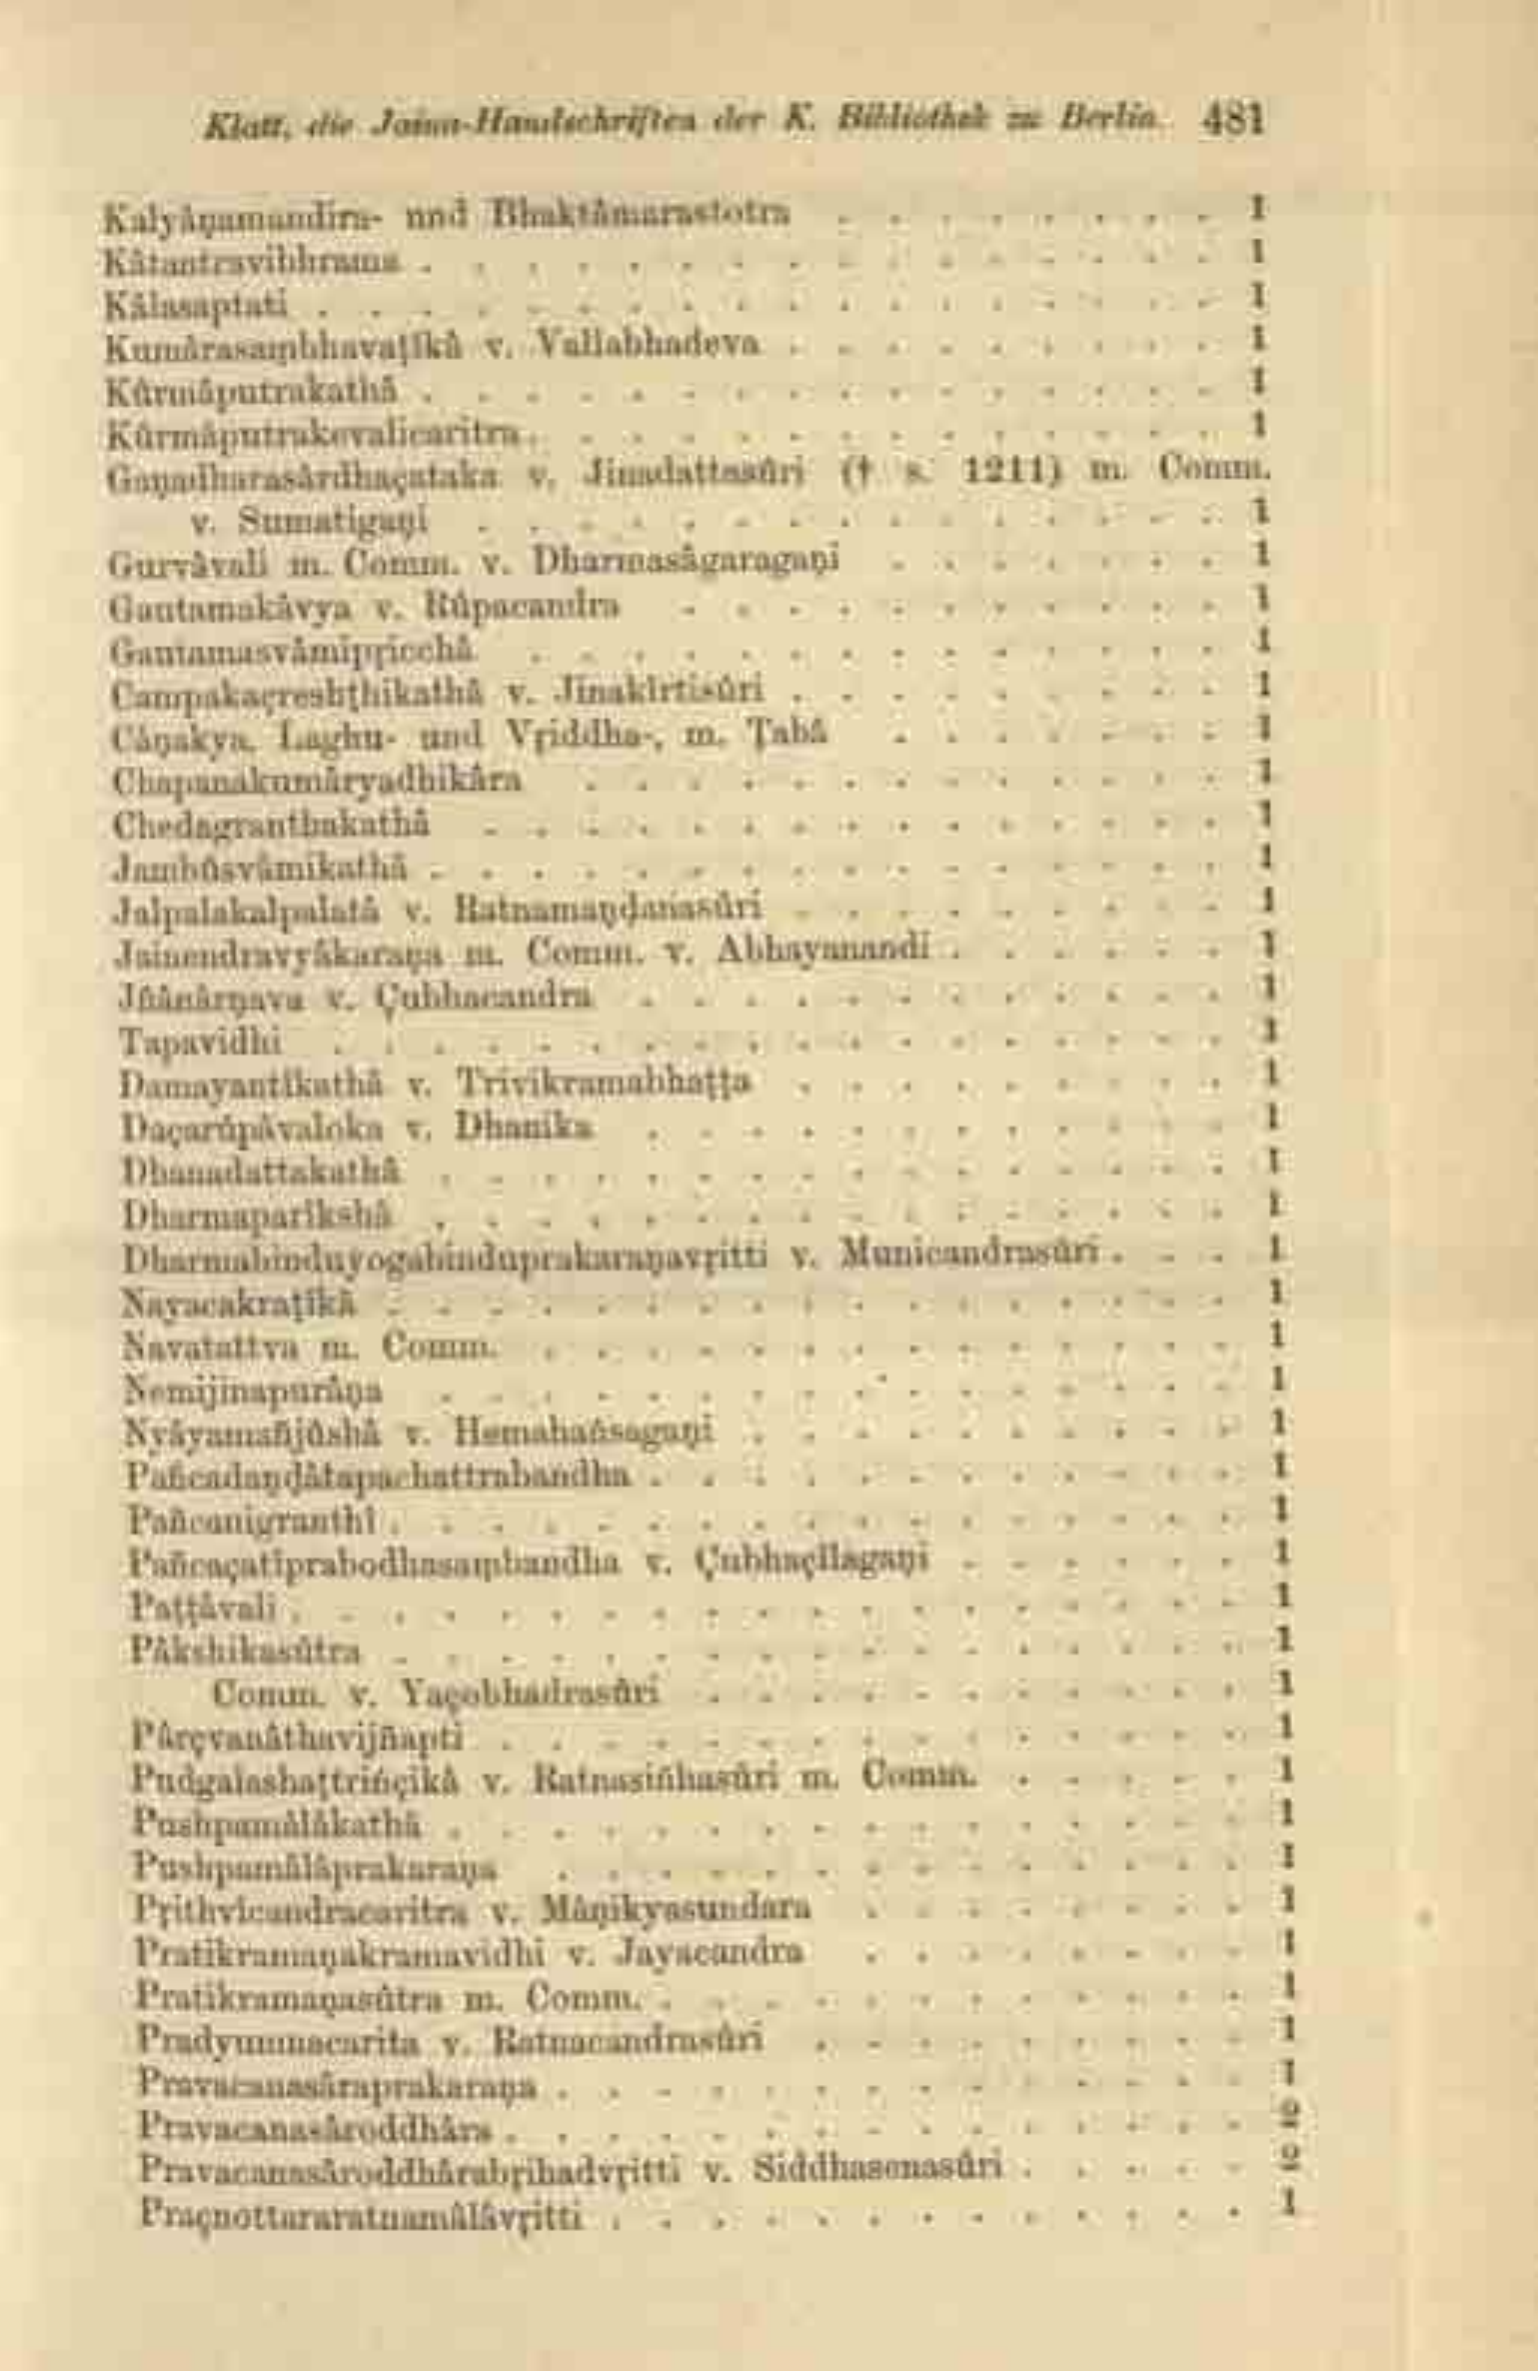 Klatt, die Jaina-Handschriften der K. Bibliothek zu Berlin. 481
Kalyâṇamandira- und Bhaktâmarastotra . . . . . . . . 1
Kâtantravibhrama . . . . . . . . . . . . . . . . 1
Kâlasaptati . . . . . . . . . . . . . . . . . . 1
Kumârasaṃbhavaṭîkâ v. Vallabhadeva . . . . . . . . . 1
Kûrmâputrakathâ . . . . . . . . . . . . . . . . 1
Kûrmâputrakevalicaritra . . . . . . . . . . . . . . 1
Gaṇadharasârdhaçataka v. Jinadattasûri († s. 1211) m. Comm.
v. Sumatigaṇi . . . . . . . . . . . . . . . 1
Gurvâvali m. Comm. v. Dharmasâgaragaṇi . . . . . . . 1
Gautamakâvya v. Rûpacandra . . . . . . . . . . . 1
Gautamasvâmipṛicchâ . . . . . . . . . . . . . . 1
Campakaçreshṭhikathâ v. Jinakîrtisûri . . . . . . . . . 1
Câṇakya, Laghu- und Vṛiddha-, m. Ṭabâ . . . . . . . 1
Chapanakumâryadhikâra . . . . . . . . . . . . . 1
Chedagranthakathâ . . . . . . . . . . . . . . . 1
Jambûsvâmikathâ . . . . . . . . . . . . . . . . 1
Jalpalakalpalatâ v. Ratnamaṇḍanasûri . . . . . . . . . 1
Jainendravyâkaraṇa m. Comm. v. Abhayanandi . . . . . . 1
Jñânârṇava v. Çubhacandra . . . . . . . . . . . . 1
Tapavidhi . . . . . . . . . . . . . . . . . . 1
Damayantîkathâ v. Trivikramabhaṭṭa . . . . . . . . . 1
Daçarûpâvaloka v. Dhanika . . . . . . . . . . . . 1
Dhanadattakathâ . . . . . . . . . . . . . . . . 1
Dharmaparîkshâ . . . . . . . . . . . . . . . . 1
Dharmabinduyogabinduprakaraṇavṛitti v. Municandrasûri . . . 1
Nayacakraṭîkâ . . . . . . . . . . . . . . . . . 1
Navatattva m. Comm. . . . . . . . . . . . . . . 1
Nemijinapurâṇa . . . . . . . . . . . . . . . . 1
Nyâyamañjûshâ v. Hemahaṅsagaṇi . . . . . . . . . . 1
Pañcadaṇḍâtapachattrabandha . . . . . . . . . . . . 1
Pañcanigranthî . . . . . . . . . . . . . . . . . 1
Pañcaçatîprabodhasaṃbandha v. Çubhaçîlagaṇi . . . . . . 1
Paṭṭâvali . . . . . . . . . . . . . . . . . . . 1
Pâkshikasûtra . . . . . . . . . . . . . . . . . 1
Comm. v. Yaçobhadrasûri . . . . . . . . . . . 1
Pârçvanâthavijñapti . . . . . . . . . . . . . . . 1
Pudgalashaṭtriṅçikâ v. Ratnasiṅhasûri m. Comm. . . . . . 1
Pushpamâlâkathâ . . . . . . . . . . . . . . . . 1
Pushpamâlâprakaraṇa . . . . . . . . . . . . . . 1
Pṛithvîcandracaritra v. Mâṇikyasundara . . . . . . . . 1
Pratikramaṇakramavidhi v. Jayacandra . . . . . . . . 1
Pratikramaṇasûtra m. Comm. . . . . . . . . . . . . 1
Pradyumnacarita v. Ratnacandrasûri . . . . . . . . . 1
Pravacanasâraprakaraṇa . . . . . . . . . . . . . . 1
Pravacanasâroddhâra . . . . . . . . . . . . . . . 2
Pravacanasâroddhârabṛihadvṛitti v. Siddhasenasûri . . . . . 2
Praçnottararatnamâlâvṛitti . . . . . . . . . . . . . 1